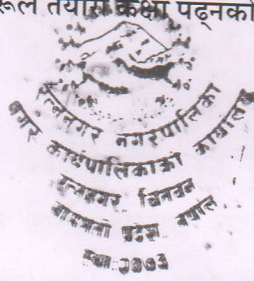 तयारी कक्षा पढ्नको
रत्ननगर नगरपालिका
नगर कार्यपालिकाको कार्यालय
रत्ननगर चितवन
बागमती प्रदेश नेपाल